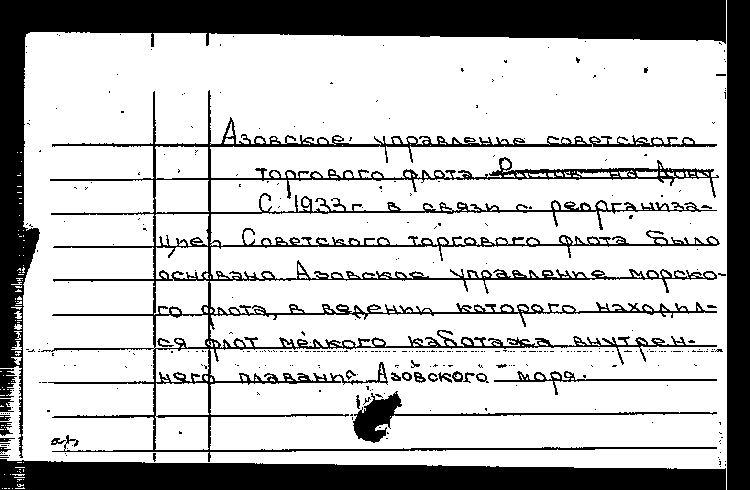 Азовское управление советского
торгового флота Ростов на Дону
С 1933 г. в связи с реорганиза-
цией Советского торгового флота было
основано Азовское управление морско-
го флота, в ведении которого находил-
ся флот мелкого каботажа внутрен-
него плавания Азовского моря.